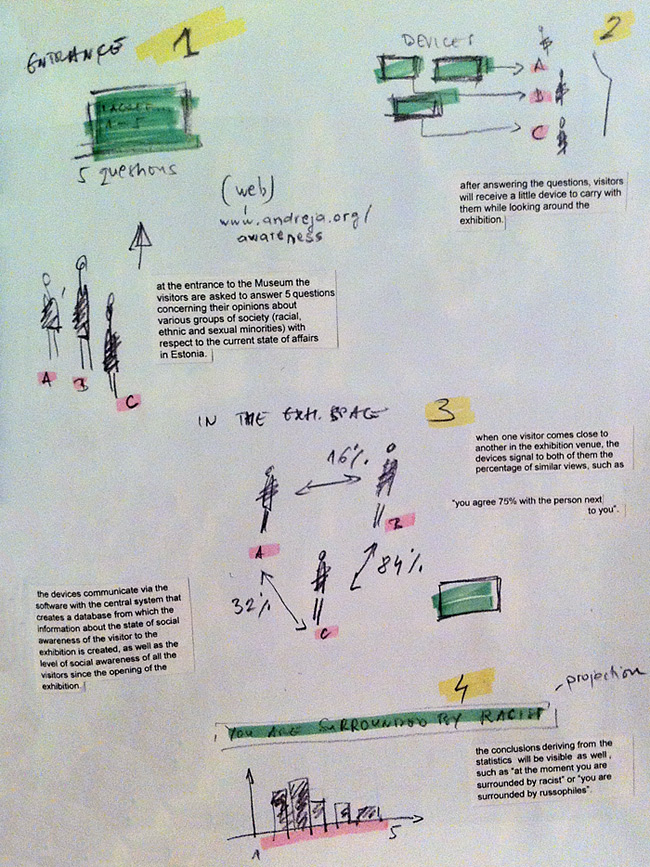 ENTRANCE
1
1 - 5
5 questions
(web)
www.andreja.org/
awareness
at the entrance to the Museum the
visitors are asked to answer 5 questions
concerning their opinions about
various groups of society (racial,
ethnic and sexual minorities) with
respect to the current state of affairs
in Estonia.
A
B
C
2
DEVICES
A
B
C
after answering the questions, visitors
will receive a little device to carry with
them while looking around the
exhibition.
IN THE EXH. SPACE
3
16%
A
B
84%
32%
C
when one visitor comes close to
another in the exhibition venue, the
devices signal to both of them the
percentage of similar views, such as
"you agree 75% with the person next
to you".
the devices communicate via the
software with the central system that
creates a database from which the
information about the state of social
awareness of the visitor to the
exhibition is created, as well as the
level of social awareness of all the
visitors since the opening of the
exhibition.
4
projection
YOU ARE SURROUNDED BY RACIST
1
5
the conclusions deriving from the
statistics will be visible as well,
such as "at the moment you are
surrounded by racist" or "you are
surrounded by russophiles".